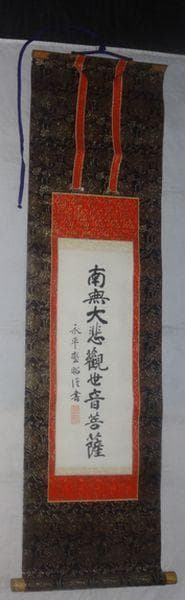 南無大悲觀世音菩薩
永平慧昭謹書